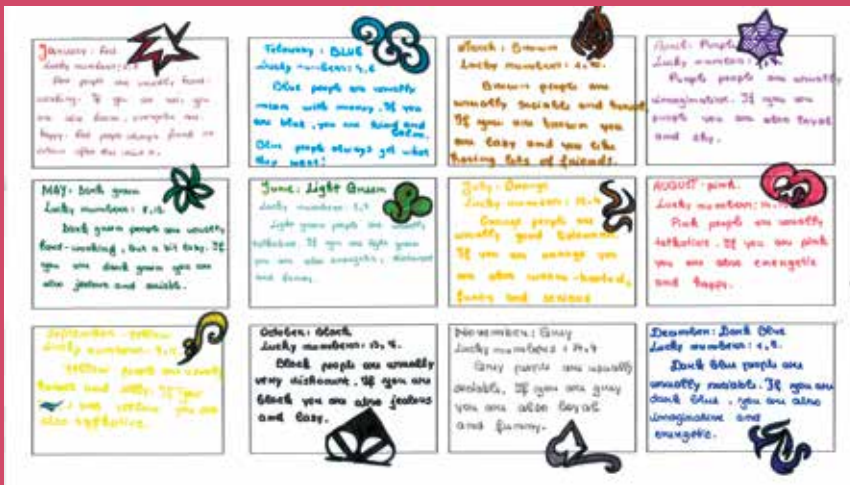 January: Red
Lucky numbers:
Red people are usually hard-
working. If you are red, you
are also
happy. Red people always
February: BLUE
Lucky numbers:
Blue people are usually
mean with money. If you
are blue, you are kind and
Blue people always get what
they want!
March: Brown
Lucky numbers:
Brown people are
usually sociable and
If you are brown you
are lazy and you like
having lots of friends.
April: Purple
Lucky numbers:
Purple people are usually
imaginative. If you are
purple you are also loyal
and shy.
MAY: Dark green
Lucky numbers: 8,12.
Dark green people are usually
hard-working, but a bit lazy. If
you are dark green you are
also jealous and
June: Light Green
Lucky numbers:
Light green people are usually
talkative. If you are light green
you are also energetic, dishonest
and funny.
July: Orange
Lucky numbers:
Orange people are
usually good
If you are orange you
are also warm-hearted,
funny and serious
AUGUST: pink.
Lucky numbers:
Pink people are usually
talkative. If you are pink
you are also energetic
and happy.
September: Yellow
Lucky numbers:
Yellow people are usually
and silly. If you
are yellow you are
also
October: Black
Lucky numbers:
Black people are usually
very dishonest. If you are
black you are also jealous
and lazy.
November: Grey
Lucky numbers:
Grey people are usually
sociable. If you are grey
you are also loyal
and funny.
December: Dark Blue
Lucky numbers:
Dark blue people are
usually sociable. If you are
dark blue, you are also
imaginative and
energetic.